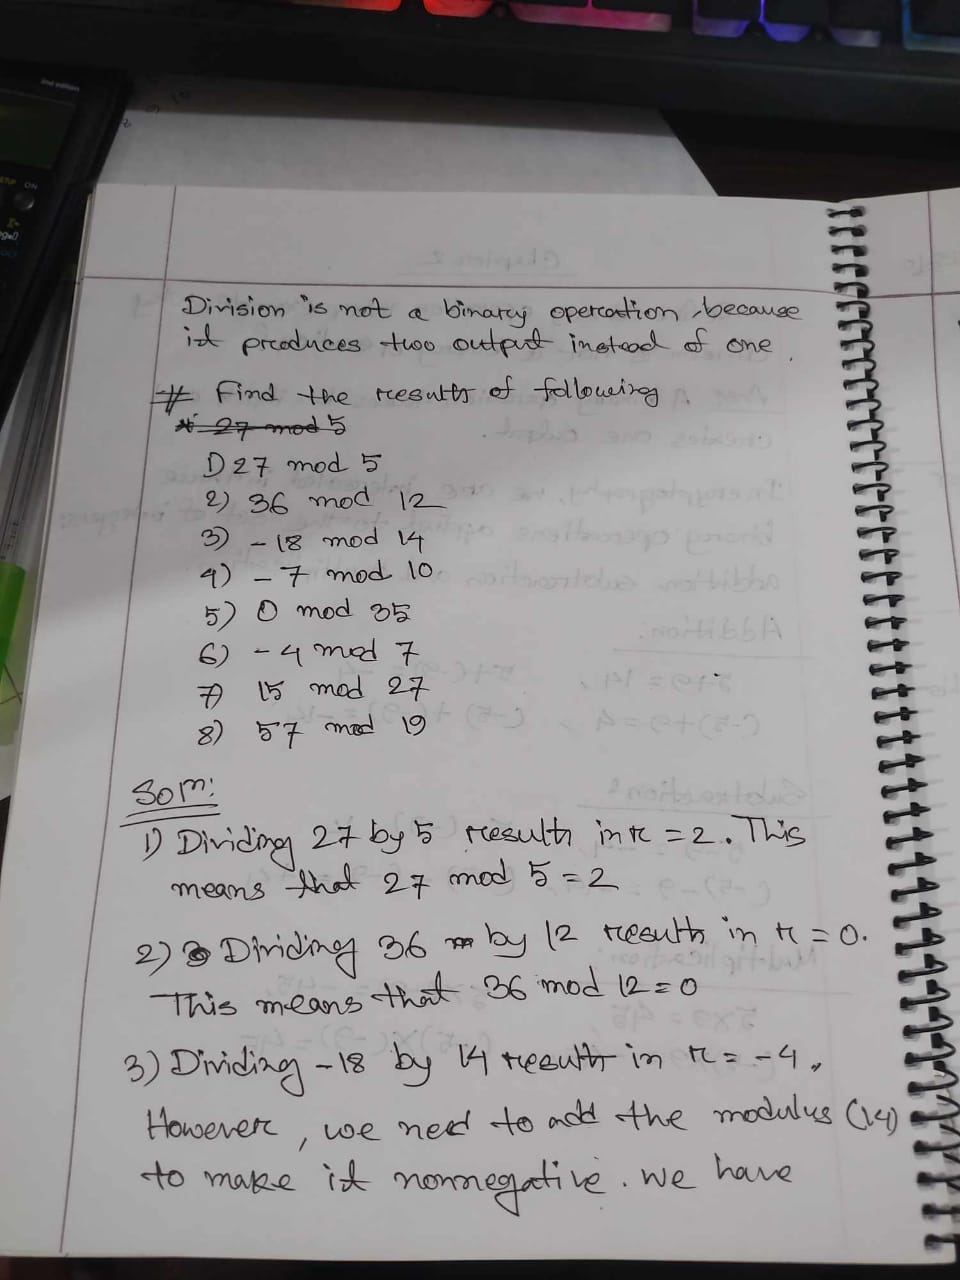 Division is not a binary operation, because
it produces two output instead of one.
# Find the results of following
* 27 mod 5
1) 27 mod 5
2) 36 mod 12
3) -18 mod 14
4) -7 mod 10
5) 0 mod 35
6) -4 mod 7
7) 15 mod 27
8) 57 mod 19
Soln:
1) Dividing 27 by 5 results in r = 2. This
means that 27 mod 5 = 2
2) Dividing 36 by 12 results in r = 0.
This means that 36 mod 12 = 0
3) Dividing -18 by 14 result in r = -4.
However, we need to add the modulus (14)
to make it nonnegative. we have